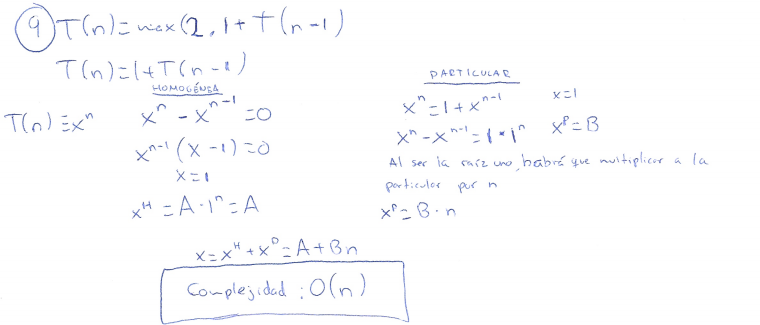 9 T(n) = max(2, 1 + T(n-1)
T(n) = 1 + T(n-1)
HOMOGÉNEA
T(n) ≡ xⁿ
xⁿ - xⁿ⁻¹ = 0
xⁿ⁻¹ (x - 1) = 0
x = 1
xᴴ = A · 1ⁿ = A
PARTICULAR
xⁿ = 1 + xⁿ⁻¹
x = 1
xⁿ - xⁿ⁻¹ = 1 * 1ⁿ
xᴾ = B
Al ser la raíz uno, habrá que multiplicar a la
particular por n
xᴾ = B · n
x = xᴴ + xᴾ = A + Bn
Complejidad : O(n)